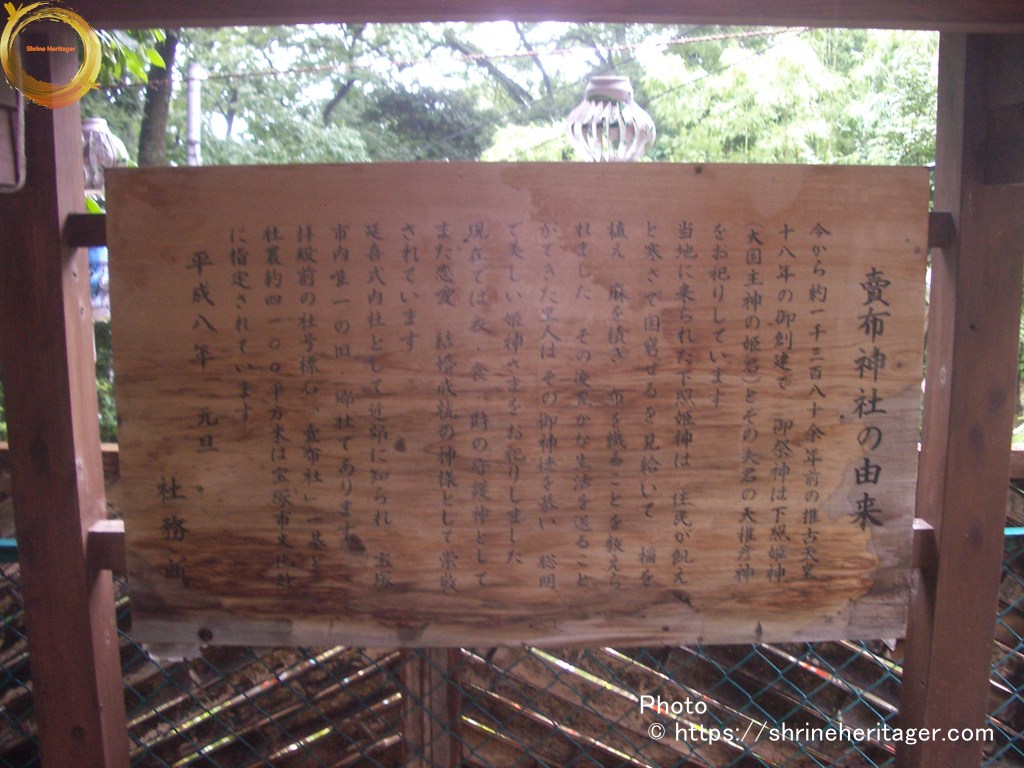 Shrine Heritager
賣布神社の由来
今から約一千三百八十余年前の推古天皇
十八年の御創建で 御祭神は下照姫神
(大国主神の姫君)とその夫君の天稚彦神
をお祀りしています
当地に来られた下照姫神は 住民が飢え
と寒さで困窮せるを見給いて 稲を
植え 麻を積ぎ 布を織ることを教えら
れました その後豊かな生活を送ること
ができた里人はその御神徳を慕い 聡明
で美しい姫神さまをお祀りしました
現在では衣 食 財の守護神として
また恋愛 結婚成就の神様として崇敬
されています
延喜式内社として近郷に知られ 宝塚
市内唯一の旧 郷社であります
拝殿前の社号標石「賣布社」一基と
社叢約四一〇〇平方米は宝塚市文化財
に指定されています
平成八年 元旦
社務所
Photo
© https://shrineheritager.com